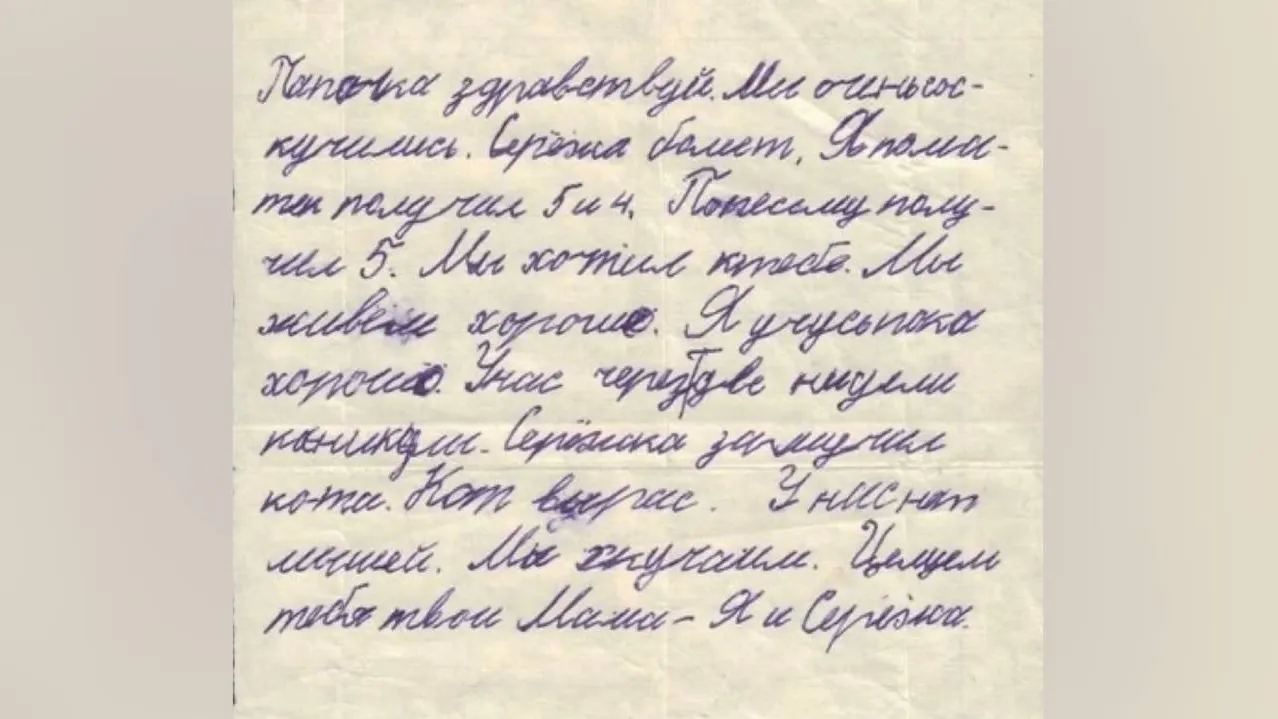 Папочка здравствуй. Мы оченьсос-
кучились. Серёжка болеет. Япома-
тем получил 5 и 4. Пописьму полу-
чил 5. Мы хотим ктебе. Мы
живём хорошо. Я учусьпока
хорошо. Унас через две нидели
каникулы. Серёжка замучил
кота. Кот вырас. У наснет
мышей. Мы скучаем. Целуем
тебя твои Мама - Я и Серёжка.